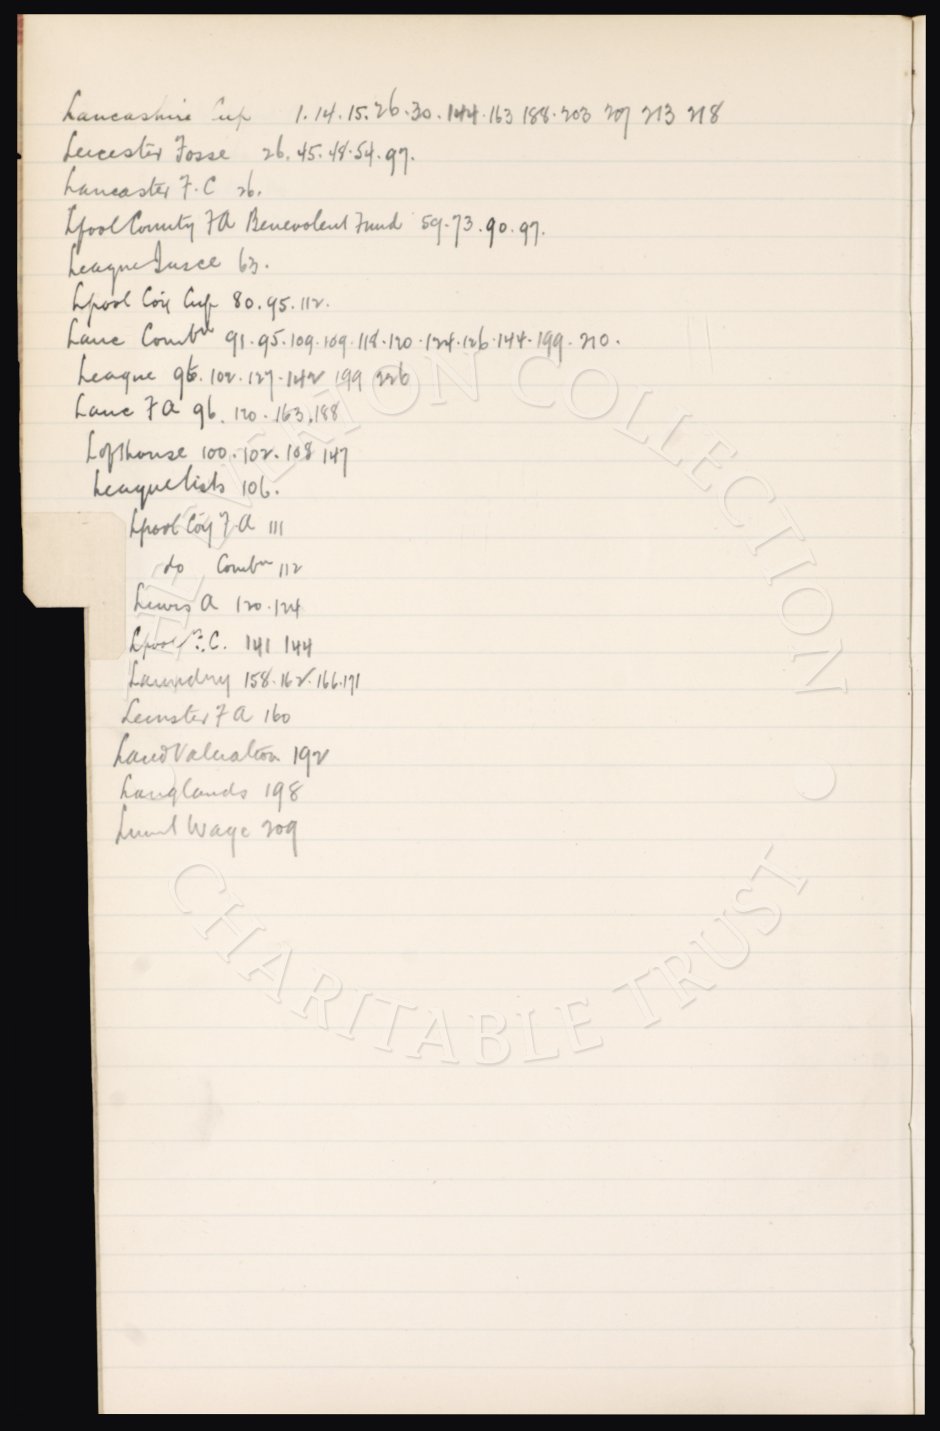 Lancashire Cup 1. 14. 15. 26. 30. 144. 163 188. 203 207 213 218
Leicester Fosse 26. 45. 48. 54. 97.
Lancaster F.C 26.
Lpool County FA Benevolent Fund 59. 73. 90. 97.
League 63.
Lpool Coy Cup 80. 95. 112.
Lanc Combn 91. 95. 109. 109. 118. 120. 124. 126. 144. 199. 210.
League 96. 102. 127. 142 199 226
Lanc FA 96. 120. 163. 188
Lofthouse 100. 102. 108 147
League lists 106.
Lpool Coy F.A 111
do Combn 112
Lewis A 120. 124
Lpool F.C. 141 144
Laundry 158. 162. 166. 171
Leinster FA 160
Land Valuation 192
Langlands 198
Wage 209
THE EVERTON COLLECTION
CHARITABLE TRUST